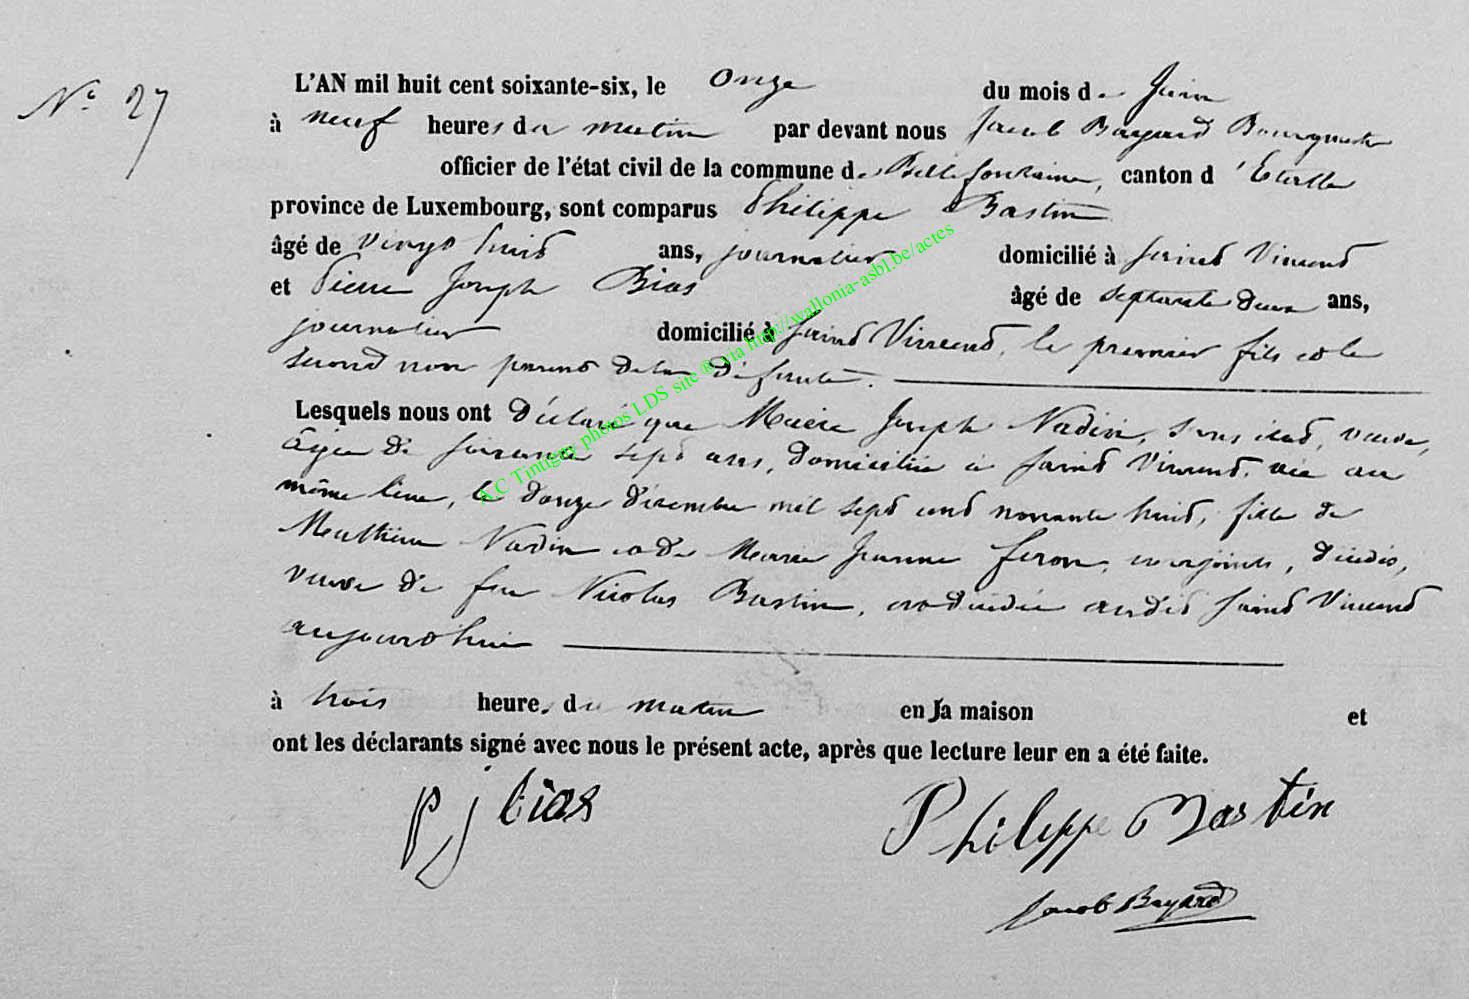 N° 27
L'AN mil huit cent soixante-six, le onze du mois de Juin
à neuf heures du matin par devant nous Jacob Bayard Bourgmestre
officier de l'état civil de la commune de Bellefontaine, canton d'Etalle
province de Luxembourg, sont comparus Philippe Bastin
âgé de vingt huit ans, journalier domicilié à Saint Vincent
et Pierre Joseph Bias âgé de septante deux ans,
journalier domicilié à Saint Vincent, le premier fils et le
second non parent de la défunte.
Lesquels nous ont déclaré que Marie Joseph Nadin, sans état, veuve,
âgée de soixante sept ans, domiciliée à Saint Vincent, née au
même lieu, le douze décembre mil sept cent nonante huit, fille de
Matthieu Nadin et de Marie Jeanne feron, conjoints, décédés,
veuve de feu Nicolas Bastin, est décédée audit Saint Vincent
aujourd'hui
à trois heures du matin en sa maison et
ont les déclarants signé avec nous le présent acte, après que lecture leur en a été faite.
p j bias
Philippe Bastin
Jacob Bayard
A.C Tintigny photos LDS site ® via http://wallonia-asbl.be/actes